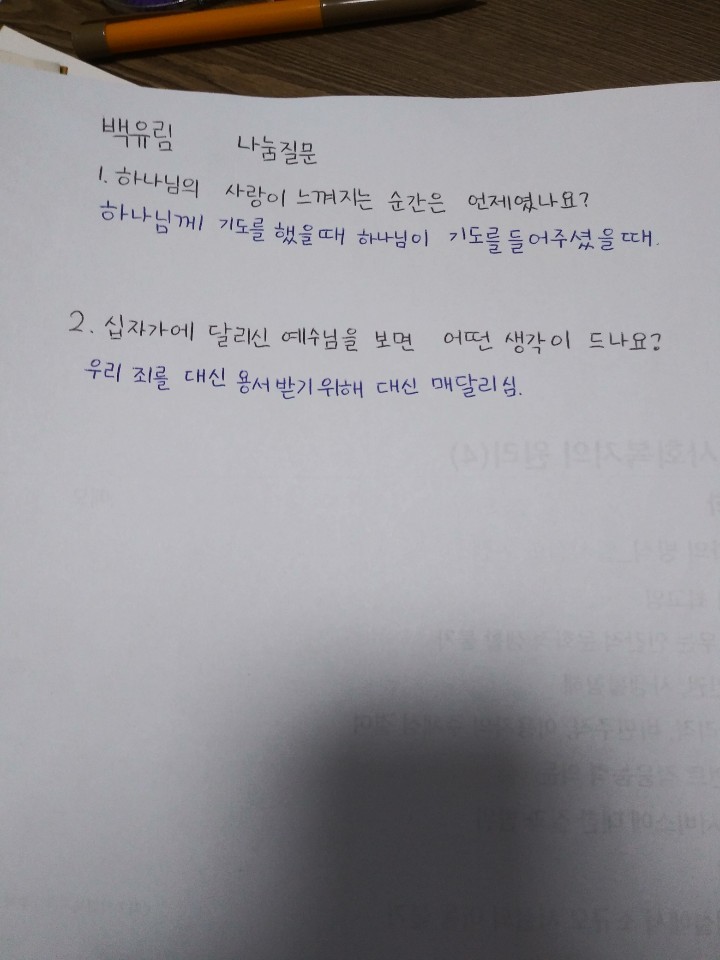 백유림 나눔질문
1. 하나님의 사랑이 느껴지는 순간은 언제였나요?
하나님께 기도를 했을때 하나님이 기도를 들어주셨을때.
2. 십자가에 달리신 예수님을 보면 어떤 생각이 드나요?
우리 죄를 대신 용서받기위해 대신 매달리심.